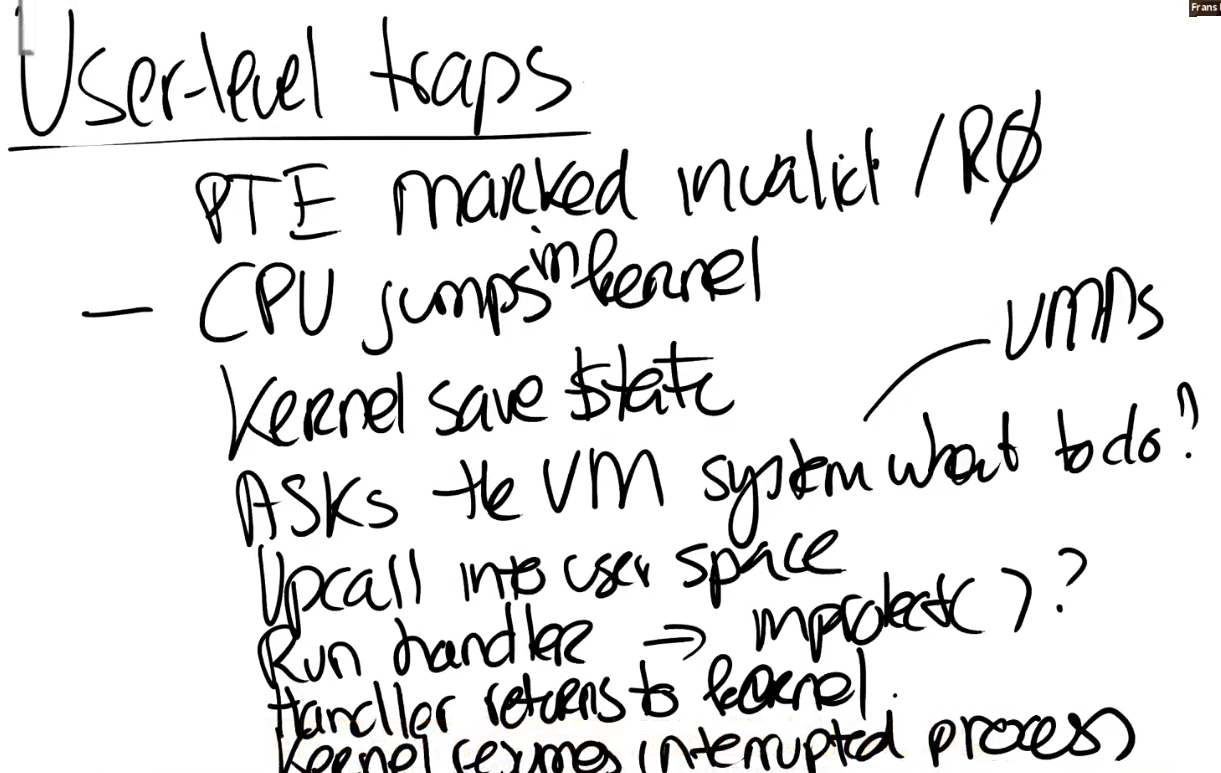 Frans
User-level traps
PTE marked invalid / RO
— CPU jumps in kernel
VMAs
Kernel save state
Asks the VM system what to do?
Upcall into user space
Run handler → mprotect()?
Handler returns to kernel.
Kernel resumes interrupted process